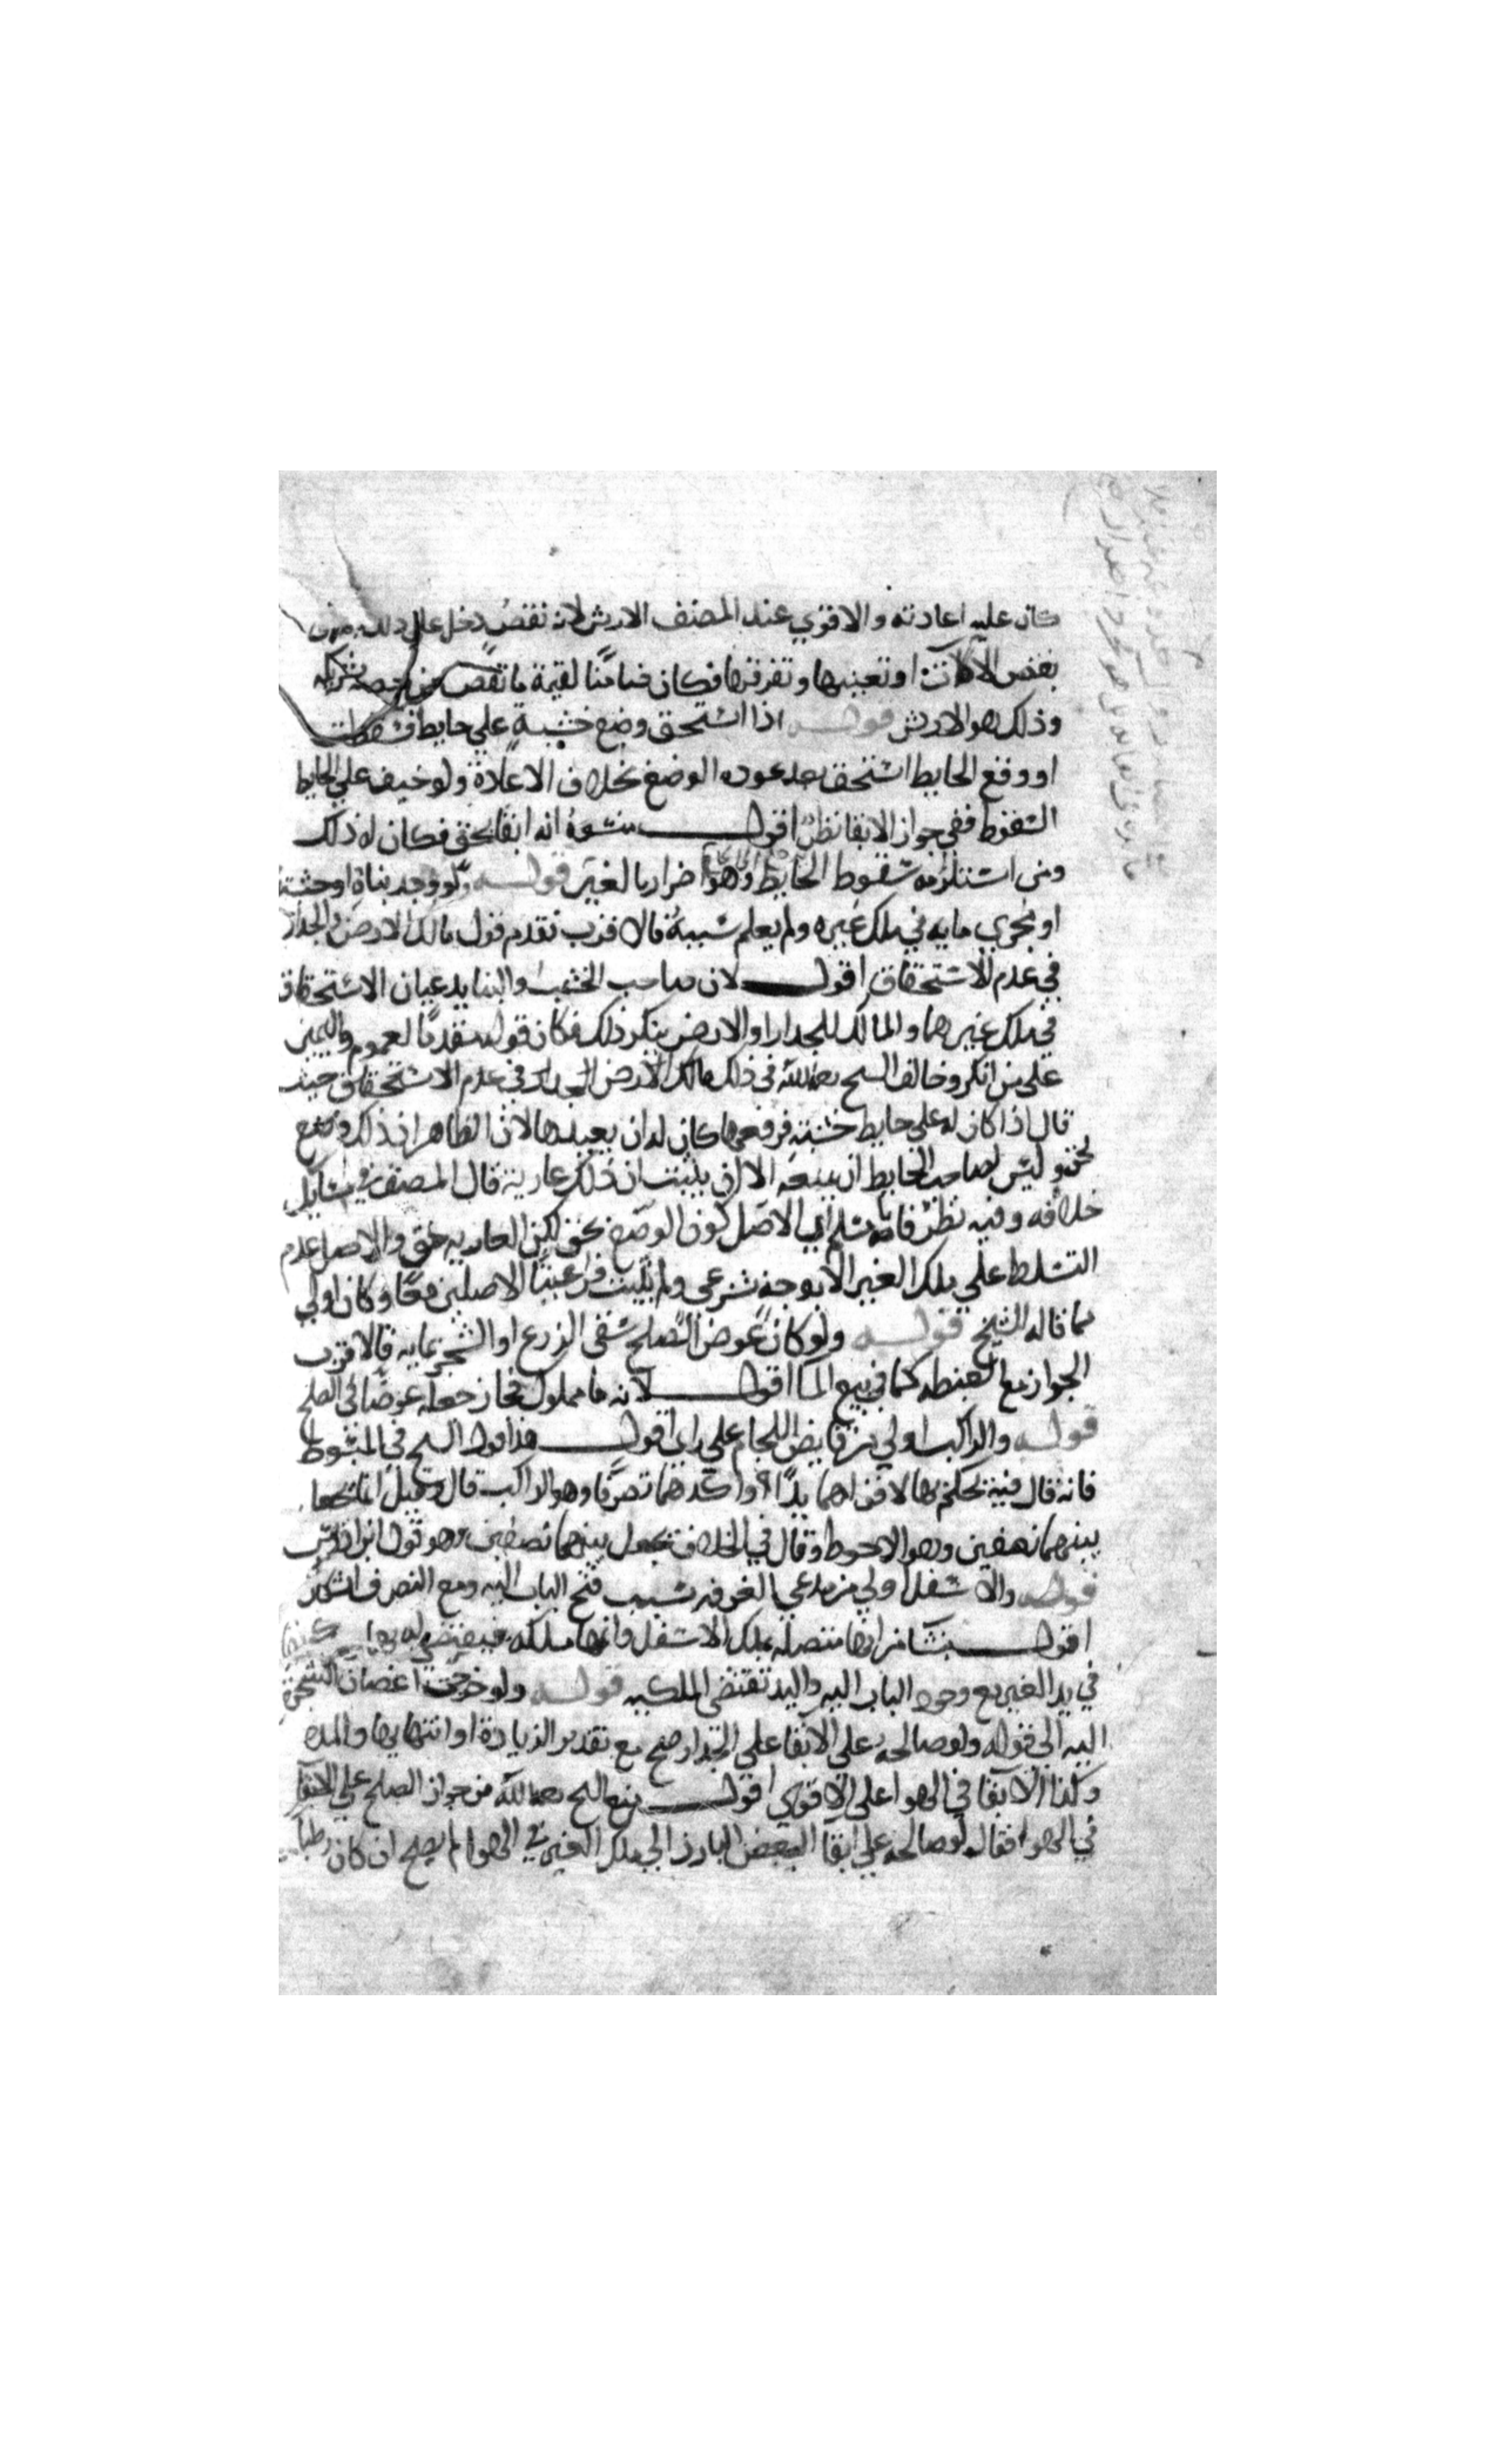 كان عليه اعادته والاقوي عند المصنف الارش لانه نقص دخل علي ذلك
بعض الالات او تعيبها وتفرقها فكان ضامنا لقيمة ما نقص من
وذلك هو الارش قوله اذا استحق وضع خشبة علي حايط فسقطت
او وقع الحايط استحق بعد عوده الوضع بخلاف الاعادة ولو خيف علي الحايط
السقوط ففي جواز الابقا نظر اقول منشوه انه ابقا بحق فكان له ذلك
ومن استلزامه سقوط الحايط وهو اضرار بالغير قوله ولو وجد بناه او خشبته
او مجري مايه في ملك غيره ولم يعلم سببه فالاقرب تقدم قول مالك الارض والجدار
في عدم الاستحقاق اقول لان صاحب الخشب والبنا يدعيان الاستحقاق
في ملك غيرهما والمالك للجدار او الارض ينكر ذلك فكان قوله مقدما لعموم واليمين
علي من انكر وخالف الشيخ رحمه الله في ذلك مالك الارض الجدار في عدم الاستحقاق حيث
قال اذا كان له علي حايط خشبة فرفعها كان له ان يعيدها لان الظاهر ان ذلك وضع
بحق وليس لصاحب الحايط ان يمنعه الا ان يثبت ان ذلك عارية قال المصنف في مسايل
خلافه وفيه نظر فانا نسلم ان الاصل كون الوضع بحق لكن العارية حق والاصل عدم
التسلط علي ملك الغير الا بوجه شرعي ولم يثبت فراعينا الاصلين معا وكان اولي
مما قاله الشيخ قوله ولو كان عوض الصلح سقي الزرع او الشجر بمايه فالاقرب
الجواز مع الضبطه كما في بيع الما اقول لانه ما مملوك فجاز جعله عوضا في الصلح
قوله والراكب اولي من قابض اللجام علي راي اقول هذا قول الشيخ في المبسوط
فانه قال فيه يحكم بها لاقواهما يدا واكدهما تصرفا وهو الراكب قال وقيل انها تجعل
بينهما نصفين وهو الاحوط وقال في الخلاف تجعل بينهما نصفين وهو قول ابن ادريس
قوله والاسفل اولي من مدعي الغرفه بسبب فتح الباب اليه ومع التصرف اشكال
اقول ينشا من انها متصلة بملك الاسفل وانها ملكه فيقتضي له بها
في يد الغير مع وجود الباب اليه واليد تقتضي الملكيه قوله ولو خرجت اغصان الشجرة
اليه الي قوله ولو صالحه علي الابقا علي الجدار صح مع تقدير الزيادة او انتهايها والمده
وكذا الابقا في الهوا علي الاقوي اقول منع الشيخ رحمه الله من جواز الصلح علي الابقا
في الهوا فقال لو صالحه علي ابقا البعض البارز الي ملك الغير في الهوا لم يصح ان كان رطبا